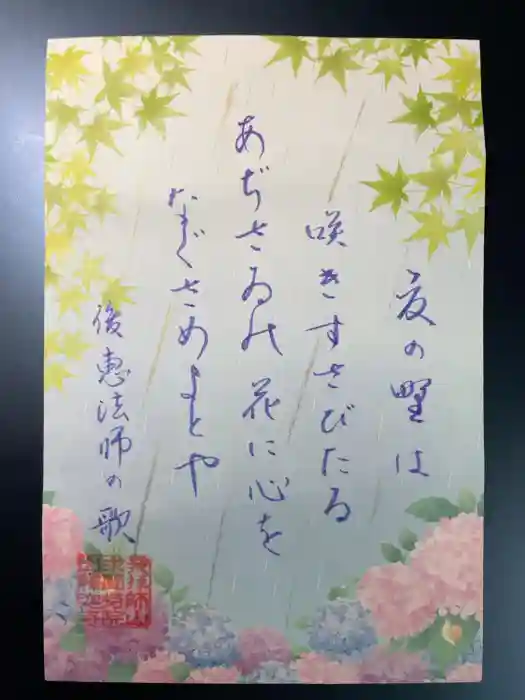 夏の野は
咲きすさびたる
あぢさゐの花に心を
なぐさめよとや
後恵法師の歌